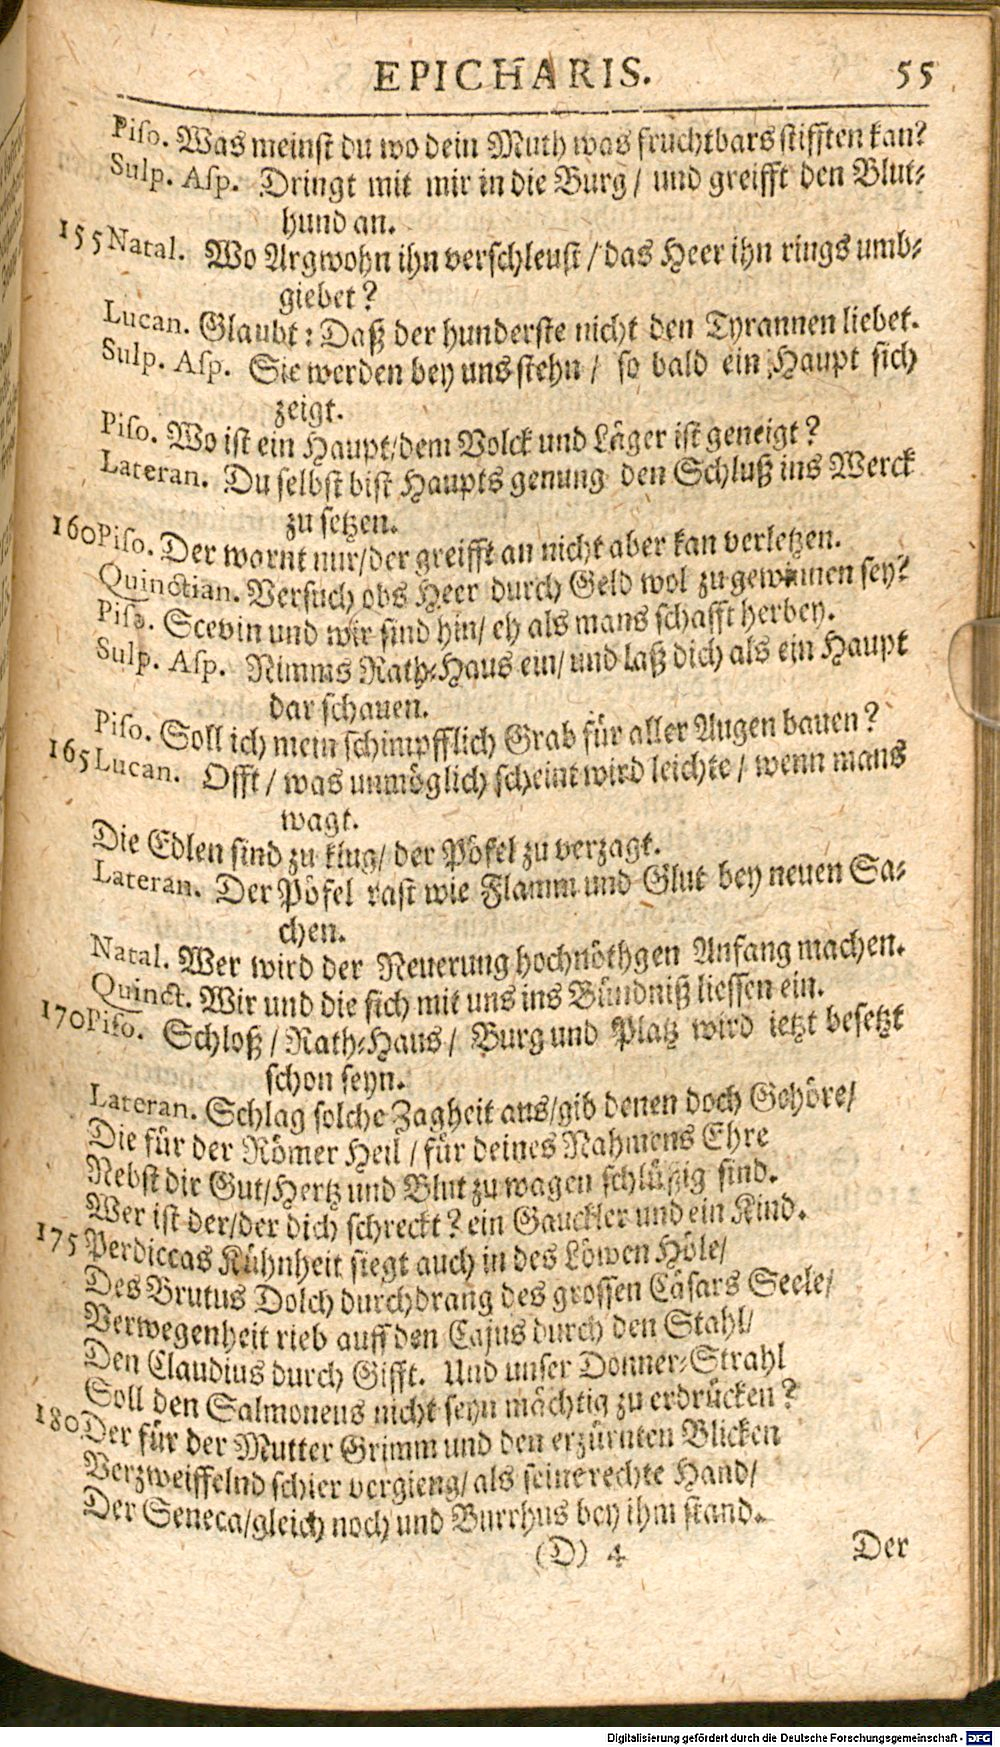 EPICHARIS. 55
Piſo. Was meinſt du wo dein Muth was fruchtbars ſtifften kan?
Sulp. Aſp. Dringt mit mir in die Burg / und greifft den Blut⸗
hund an.
155 Natal. Wo Argwohn ihn verſchleuſt / das Heer ihn rings umb⸗
giebet?
Lucan. Glaubt: Daß der hunderſte nicht den Tyrannen liebet.
Sulp. Aſp. Sie werden bey uns ſtehn / ſo bald ein Haupt ſich
zeigt.
Piſo. Wo iſt ein Haupt / dem Volck und Läger iſt geneigt?
Lateran. Du ſelbſt biſt Haupts genung den Schluß ins Werck
zu ſetzen.
160 Piſo. Der warnt nur / der greifft an nicht aber kan verletzen.
Quinctian. Verſuch obs Heer durch Geld wol zu gewinnen ſey?
Piſo. Scevin und wir ſind hin / eh als mans ſchafft herbey.
Sulp. Aſp. Nimms Rath⸗Haus ein / und laß dich als ein Haupt
dar ſchauen.
Piſo. Soll ich mein ſchimpfflich Grab für aller Augen bauen?
165 Lucan. Offt / was unmöglich ſcheint wird leichte / wenn mans
wagt.
Die Edlen ſind zu klug / der Pöfel zu verzagt.
Lateran. Der Pöfel raſt wie Flamm und Glut bey neuen Sa⸗
chen.
Natal. Wer wird der Neuerung hochnöthgen Anfang machen.
Quinct. Wir und die ſich mit uns ins Bündniß lieſſen ein.
170 Piſo. Schloß / Rath⸗Haus / Burg und Platz wird ietzt beſetzt
ſchon ſeyn.
Lateran. Schlag ſolche Zagheit aus / gib denen doch Gehöre /
Die für der Römer Heil / für deines Nahmens Ehre
Nebſt dir Gut / Hertz und Blut zu wagen ſchlüßig ſind.
Wer iſt der / der dich ſchreckt? ein Gauckler und ein Kind.
175 Perdiccas Kühnheit ſiegt auch in des Löwen Höle /
Des Brutus Dolch durchdrang des groſſen Cäſars Seele /
Verwegenheit rieb auff den Cajus durch den Stahl /
Den Claudius durch Gifft. Und unſer Donner⸗Strahl
Soll den Salmoneus nicht ſeyn mächtig zu erdrücken?
180 Der für der Mutter Grimm und den erzürnten Blicken
Verzweiffelnd ſchier vergieng / als ſeine rechte Hand /
Der Seneca / gleich noch und Burrhus bey ihm ſtand.
(D) 4 Der
Digitalisierung gefördert durch die Deutsche Forschungsgemeinschaft - DFG